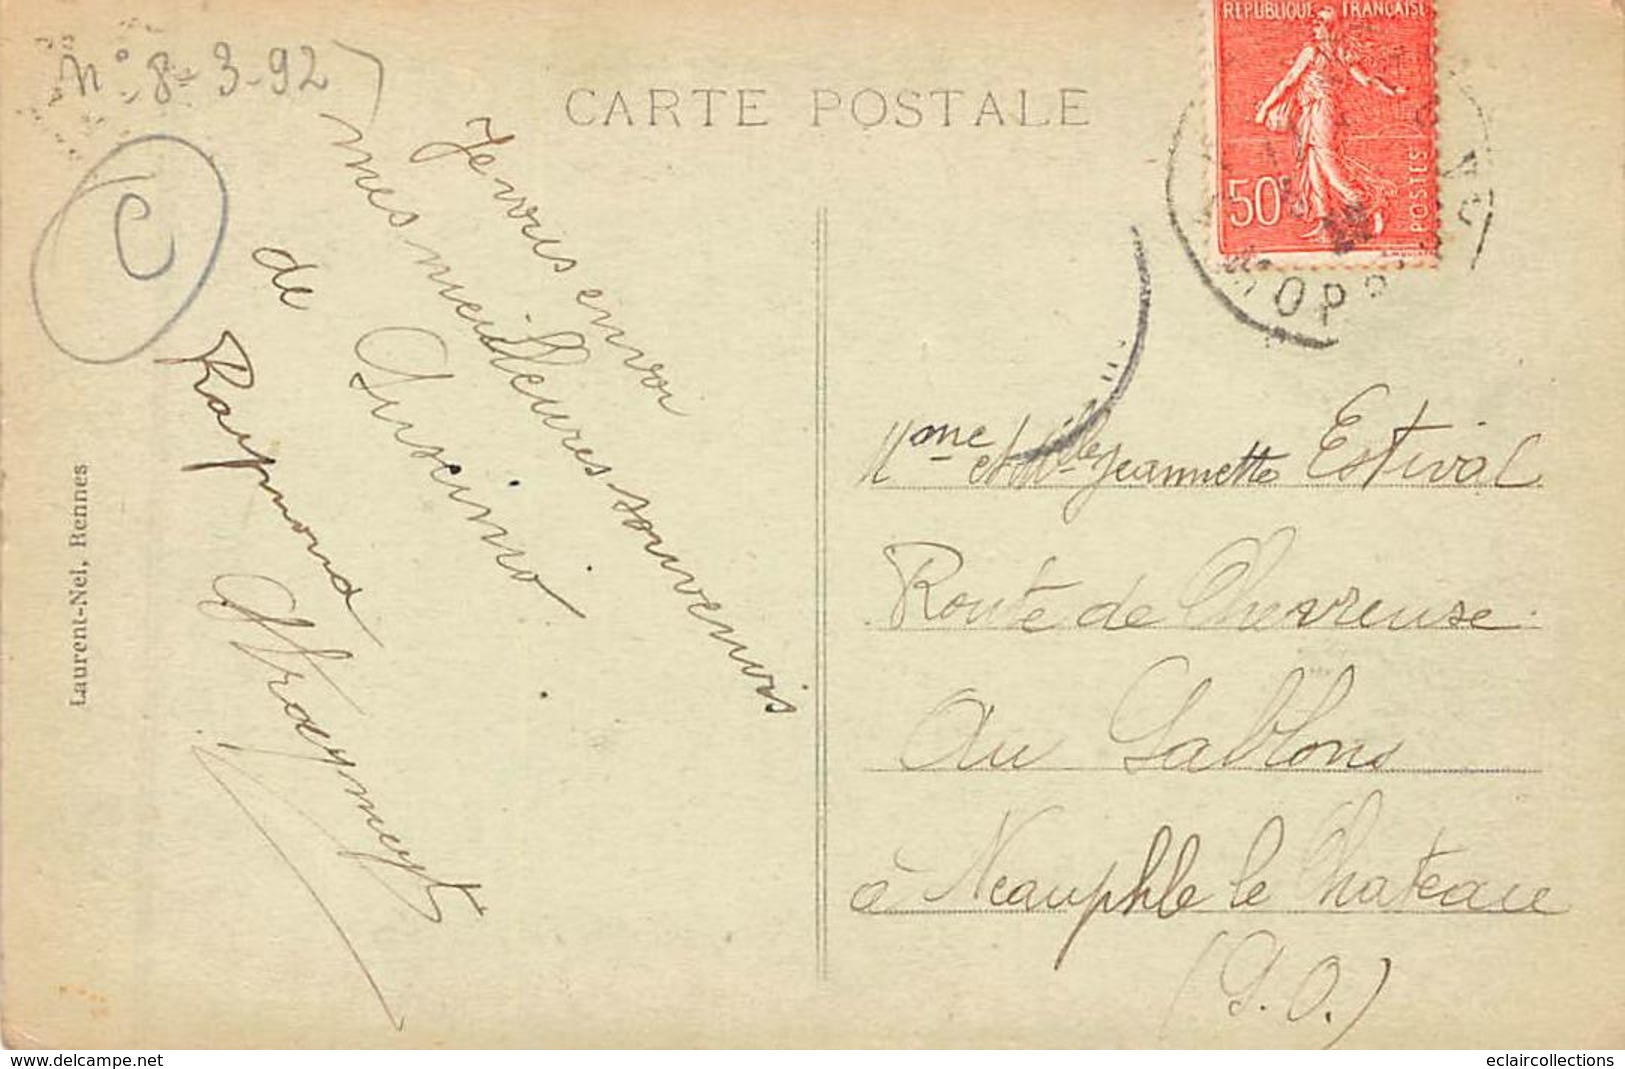 n° 8-3-92
C
CARTE POSTALE
REPUBLIQUE FRANÇAISE
50c
POSTES
Je vous envoi
mes meilleures souvenirs
de Suscinio
Raymond
Laurent-Nel, Rennes
Mme et Mlle Jeannette Estival
Route de Chevreuse
au Sablons
à Neauphle le Chateau
(S.O.)
www.delcampe.net
eclaircollections